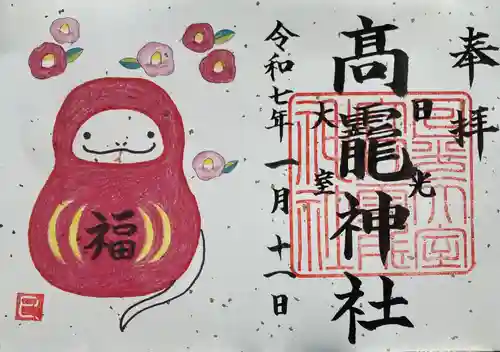 奉拝
日光
大室
高龗神社
令和七年一月十一日
福
巳